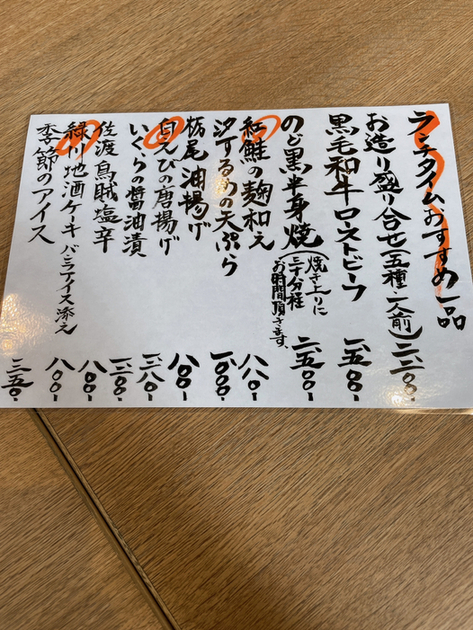 ランチタイムおすすめ一品
お造り盛り合せ(五種・一人前) 二、二〇〇-
黒毛和牛ローストビーフ 一、五〇〇-
のど黒半身焼(焼き上りに
三十分程
お時間頂きます。) 二、五〇〇-
紅鮭の麹和え 八八〇-
汐するめの天ぷら 一、〇〇〇-
栃尾油揚げ 八〇〇-
白えびの唐揚げ
いくらの醤油漬
佐渡烏賊塩辛 八〇〇-
緑川地酒ケーキ バニラアイス添え 八〇〇-
季節のアイス 三五〇-